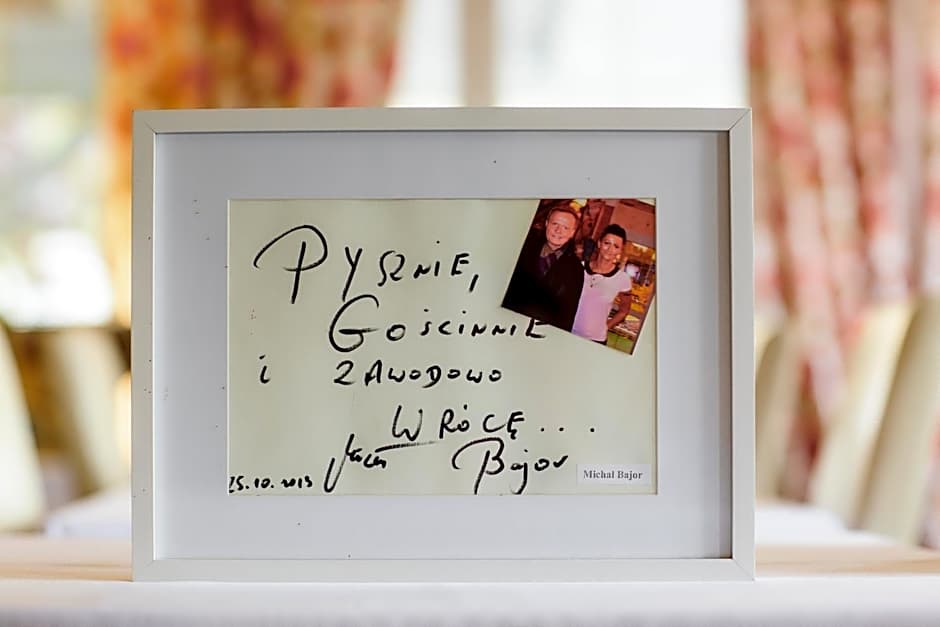 PYSZNIE,
GOŚCINNIE
i ZAWODOWO
WRÓCĘ...
Bajor
25.10.2013
Michał Bajor